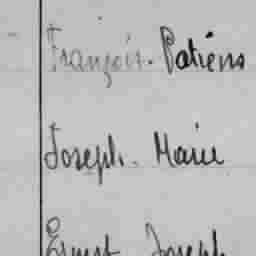 François. Patiens
Joseph. Marie
Ernest Joseph